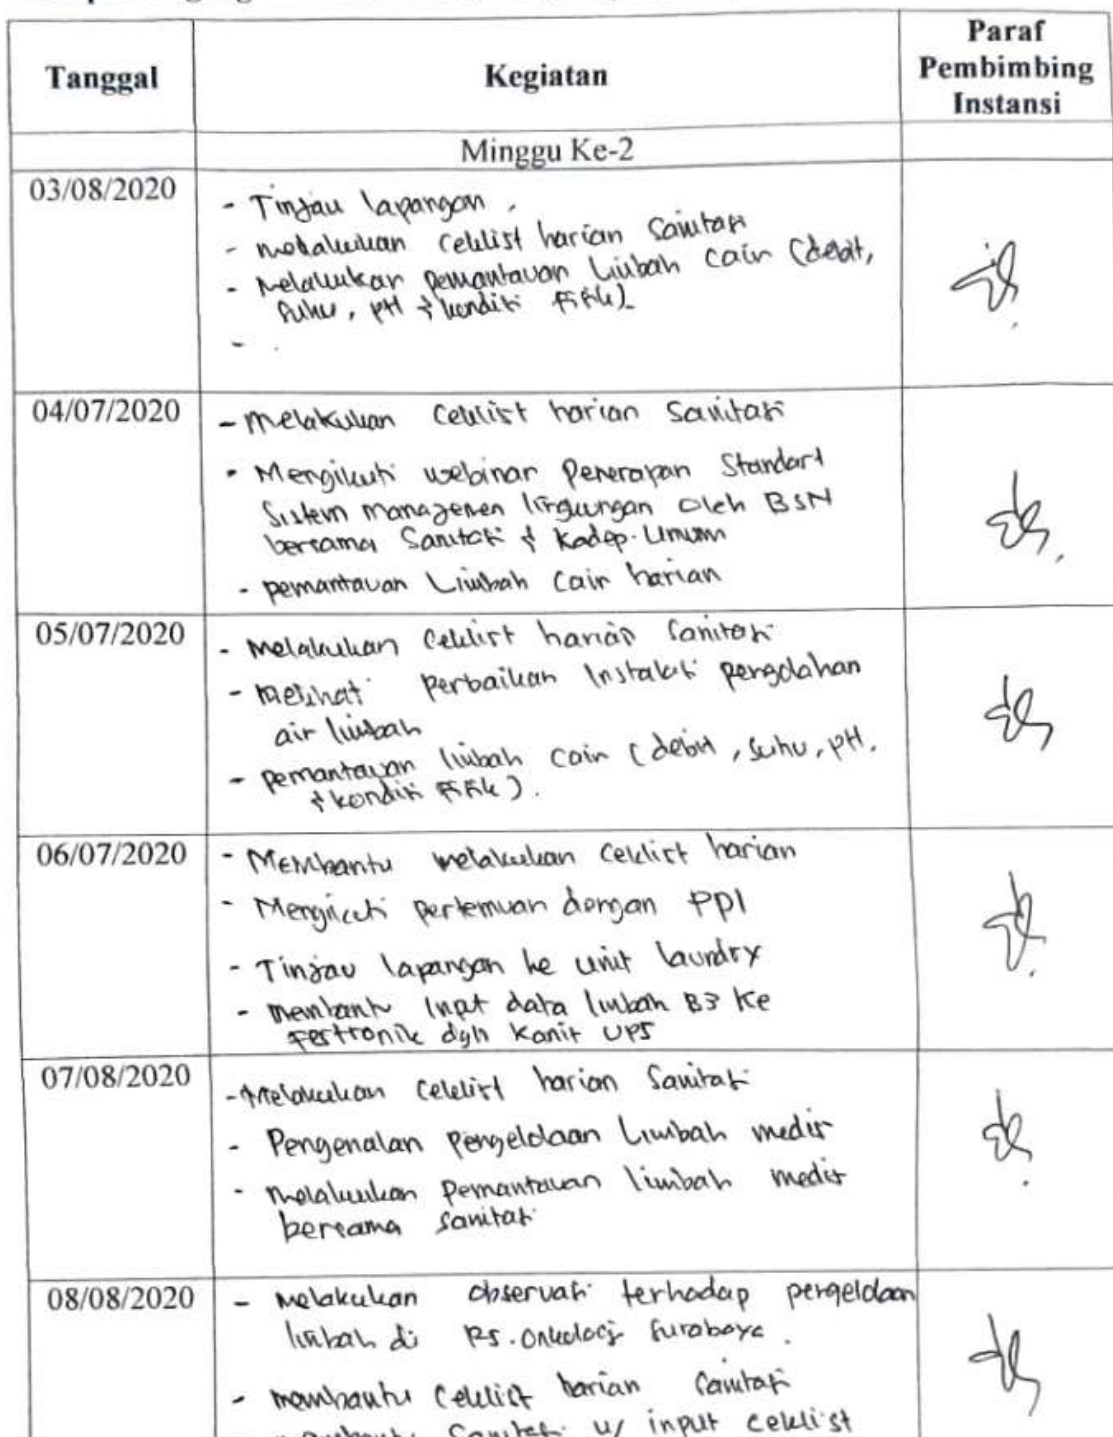 Tanggal
Kegiatan
Paraf
Pembimbing
Instansi
Minggu Ke-2
03/08/2020
- Tinjau lapangan.
- melakukan ceklist harian sanitasi
- Melakukan pemantauan Limbah cair (debit,
suhu, pH & kondisi fisik)
-
04/07/2020
- Melakukan ceklist harian Sanitasi
- Mengikuti webinar Penerapan Standart
Sistem manajemen lingkungan oleh BSN
bersama Sanitasi & Kadep. Umum
- pemantauan Limbah cair harian
05/07/2020
- Melakukan ceklist harian sanitasi
- Melihat perbaikan Instalasi pengolahan
air limbah
- pemantauan limbah cair (debit, suhu, pH,
& kondisi fisik).
06/07/2020
- Membantu melakukan ceklist harian
- Mengikuti pertemuan dengan PPI
- Tinjau lapangan ke unit laundry
- membantu Input data limbah B3 ke
Festronik dgn Kanit UPS
07/08/2020
- Melakukan ceklist harian Sanitasi
- Pengenalan pengelolaan Limbah medis
- melakukan pemantauan limbah medis
bersama sanitasi
08/08/2020
- Melakukan observasi terhadap pengelolaan
limbah di RS. Onkologi Surabaya.
- membantu ceklist harian Sanitasi
Sanitasi u/ input ceklist